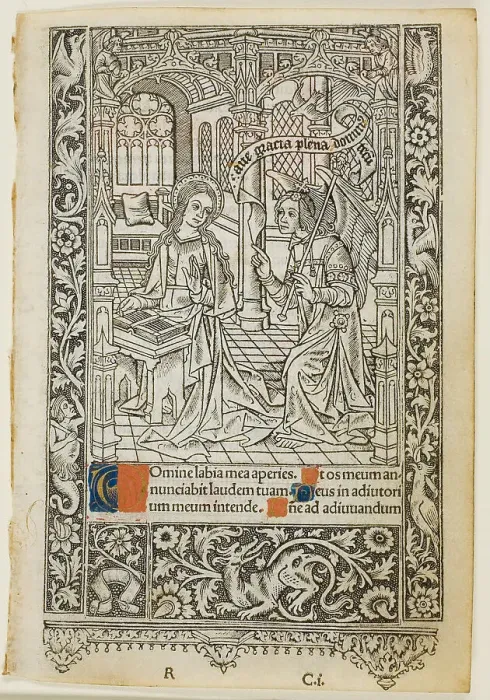 aue gracia plena dominꝰ tecū
Omine labia mea aperies. Et os meum an-
nunciabit laudem tuam. Deus in adiutori
um meum intende. ne ad adiuuandum
R C.i.